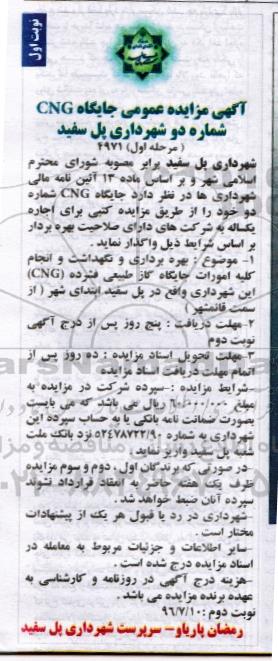 نوبت اول
آگهی مزایده عمومی جایگاه CNG
شماره دو شهرداری پل سفید
( مرحله اول ) ۴۹۷۱
شهرداری پل سفید برابر مصوبه شورای محترم
اسلامی شهر و بر اساس ماده ۱۳ آئین نامه مالی
شهرداری ها در نظر دارد جایگاه CNG شماره
دو خود را از طریق مزایده کتبی برای اجاره
یکساله به شرکت های دارای صلاحیت بهره بردار
بر اساس شرایط ذیل واگذار نماید .
۱- موضوع : بهره برداری و نگهداشت و انجام
کلیه امورات جایگاه گاز طبیعی فشرده (CNG)
این شهرداری واقع در پل سفید ابتدای شهر ( از
سمت قائمشهر )
۲-مهلت دریافت : پنج روز پس از درج آگهی
نوبت دوم
۳-مهلت تحویل اسناد مزایده : ده روز پس از
اتمام مهلت دریافت اسناد مزایده
-شرایط مزایده :-سپرده شرکت در مزایده به
مبلغ ۶۰/۰۰۰/۰۰۰ ریال می باشد که می بایست
بصورت ضمانت نامه بانکی یا به حساب سپرده این
شهرداری به شماره ۰۵۲۴۷۸۷۲۲/۹ نزد بانک ملت
شعبه پل سفید واریز نماید .
-در صورتی که برندگان اول ، دوم و سوم مزایده
ظرف یک هفته حاضر به انعقاد قرارداد نشوند
سپرده آنان ضبط خواهد شد .
-شهرداری در رد یا قبول هر یک از پیشنهادات
مختار است .
-سایر اطلاعات و جزئیات مربوط به معامله در
اسناد مزایده درج شده است .
-هزینه درج آگهی در روزنامه و کارشناسی به
عهده برنده مزایده می باشد .
نوبت دوم : ۹۶/۷/۱۰
رمضان پاریاو- سرپرست شهرداری پل سفید